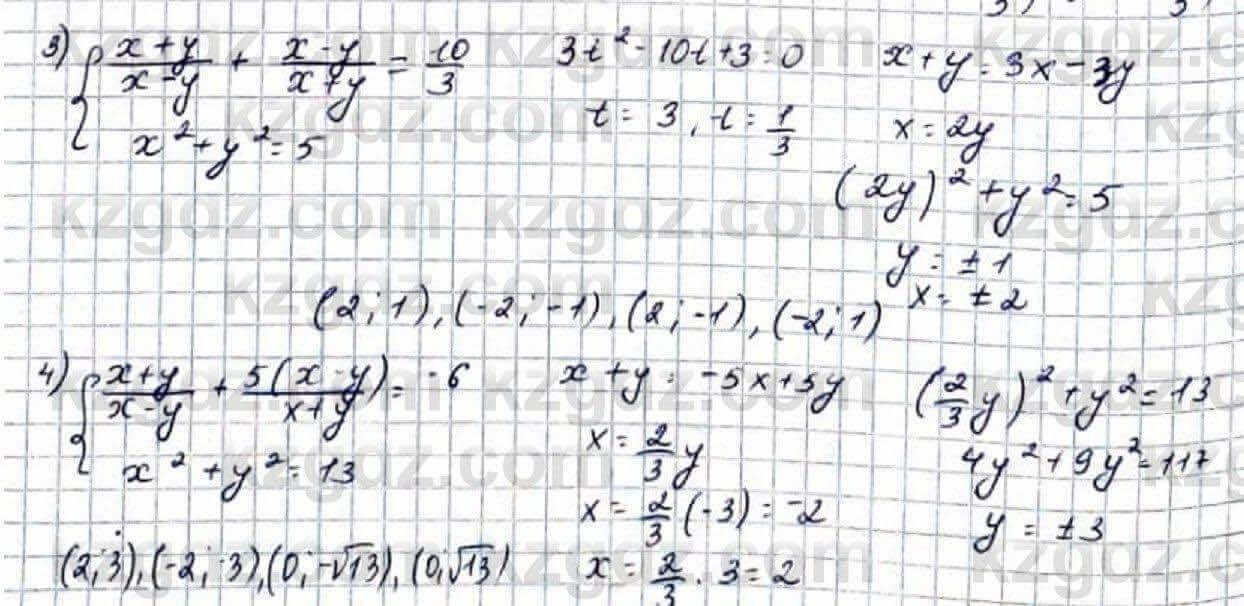 3) { (x+y)/(x-y) + (x-y)/(x+y) = 10/3
x² + y² = 5
3t² - 10t + 3 = 0
t = 3, t = 1/3
x + y = 3x - 3y
x = 2y
(2y)² + y² = 5
y = ±1
x = ±2
(2; 1), (-2; -1), (2; -1), (-2; 1)
4) { (x+y)/(x-y) + 5(x-y)/(x+y) = -6
x² + y² = 13
x + y = -5x + 5y
x = 2/3 y
x = 2/3 (-3) = -2
x = 2/3 · 3 = 2
(2/3 y)² + y² = 13
4y² + 9y² = 117
y = ±3
(2; 3), (-2; -3), (0; -√13), (0; √13)
kzgdz.com